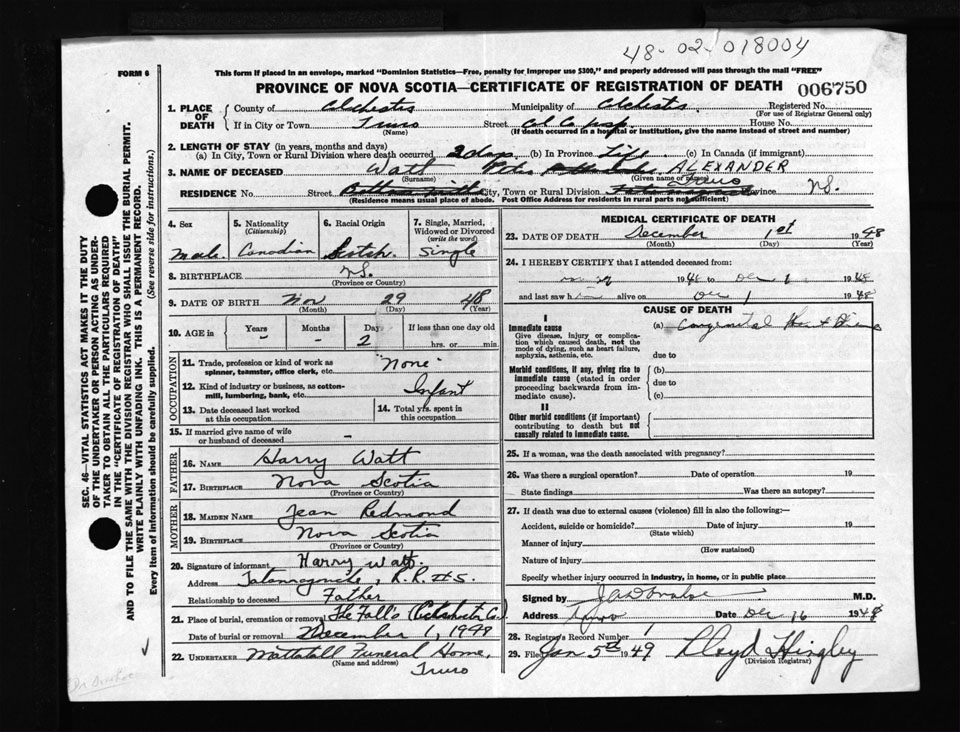 48-02-018004
FORM 6
This form if placed in an envelope, marked "Dominion Statistics—Free, penalty for improper use $300," and properly addressed will pass through the mail "FREE"
PROVINCE OF NOVA SCOTIA—CERTIFICATE OF REGISTRATION OF DEATH 006750
1. PLACE OF DEATH County of Colchester Municipality of Colchester Registered No.
(For use of Registrar General only)
If in City or Town Truro Street Col Co Hosp. House No.
(Name) (If death occurred in a hospital or institution, give the name instead of street and number)
2. LENGTH OF STAY (in years, months and days)
(a) In City, Town or Rural Division where death occurred 2 days (b) In Province Life (c) In Canada (if immigrant)
3. NAME OF DECEASED Watt Peter ALEXANDER
(Surname) (Given name or names)
RESIDENCE No. Street City, Town or Rural Division Truro Province N.S.
(Residence means usual place of abode. Post Office Address for residents in rural parts not sufficient)
4. Sex 5. Nationality (Citizenship) 6. Racial Origin 7. Single, Married, Widowed or Divorced (write the word)
Male. Canadian Scotch. Single
8. BIRTHPLACE N.S.
(Province or Country)
9. DATE OF BIRTH Nov 29 48
(Month) (Day) (Year)
10. AGE in Years Months Days If less than one day old
- - 2 hrs. or min.
OCCUPATION
11. Trade, profession or kind of work as spinner, teamster, office clerk, etc. "None"
12. Kind of industry or business, as cotton-mill, lumbering, bank, etc. Infant
13. Date deceased last worked at this occupation 14. Total yrs. spent in this occupation
15. If married give name of wife or husband of deceased -
FATHER
16. NAME Harry Watt
17. BIRTHPLACE Nova Scotia
(Province or Country)
MOTHER
18. MAIDEN NAME Jean Redmond
19. BIRTHPLACE Nova Scotia
(Province or Country)
20. Signature of informant Harry Watt.
Address Tatamagouche, R.R. #5.
Relationship to deceased Father
21. Place of burial, cremation or removal The Falls (Colchester Co.)
Date of burial or removal December 1, 1948
22. UNDERTAKER Mattatall Funeral Home,
(Name and address) Truro
MEDICAL CERTIFICATE OF DEATH
23. DATE OF DEATH December 1st 1948
(Month) (Day) (Year)
24. I HEREBY CERTIFY that I attended deceased from:
Nov 29 1948 to Dec 1 1948
and last saw him alive on Dec 1 1948
CAUSE OF DEATH
I
Immediate cause (a) Congenital Heart Disease
Give disease, injury or complication which caused death, not the mode of dying, such as heart failure, asphyxia, asthenia, etc. due to
Morbid conditions, if any, giving rise to immediate cause (stated in order proceeding backwards from immediate cause). (b)
due to
(c)
II
Other morbid conditions (if important) contributing to death but not causally related to immediate cause.
25. If a woman, was the death associated with pregnancy?
26. Was there a surgical operation? Date of operation 19
State findings Was there an autopsy?
27. If death was due to external causes (violence) fill in also the following:—
Accident, suicide or homicide? Date of injury 19
(State which)
Manner of injury
(How sustained)
Nature of injury
Specify whether injury occurred in industry, in home, or in public place
Signed by M.D.
Address Truro Date Dec 16 1948
28. Registrar's Record Number 1
29. Filed Jan 5th 1949 Lloyd Hingley
(Division Registrar)
SEC. 46—VITAL STATISTICS ACT MAKES IT THE DUTY
OF THE UNDERTAKER OR PERSON ACTING AS UNDER-
TAKER TO OBTAIN ALL THE PARTICULARS REQUIRED
IN THE "CERTIFICATE OF REGISTRATION OF DEATH"
AND TO FILE THE SAME WITH THE DIVISION REGISTRAR WHO SHALL ISSUE THE BURIAL PERMIT.
WRITE PLAINLY WITH UNFADING INK. THIS IS A PERMANENT RECORD.
Every item of information should be carefully supplied. (See reverse side for instructions.)